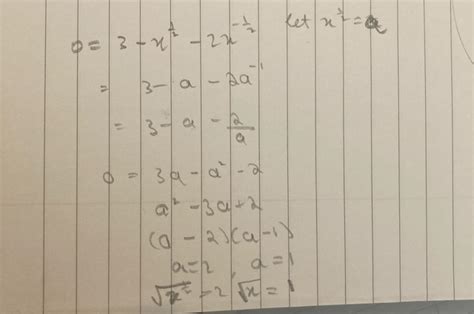 0 = 3 - x^{1/2} - 2x^{-1/2} let x^{1/2} = a
= 3 - a - 2a^{-1}
= 3 - a - 2/a
0 = 3a - a² - 2
a² - 3a + 2
(a - 2)(a - 1)
a = 2, a = 1
= 2 √x = 1